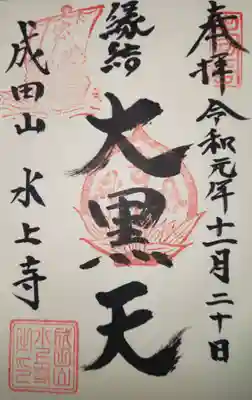 奉拝
令和元年十一月二十日
縁結
大黒天
成田山 水上寺